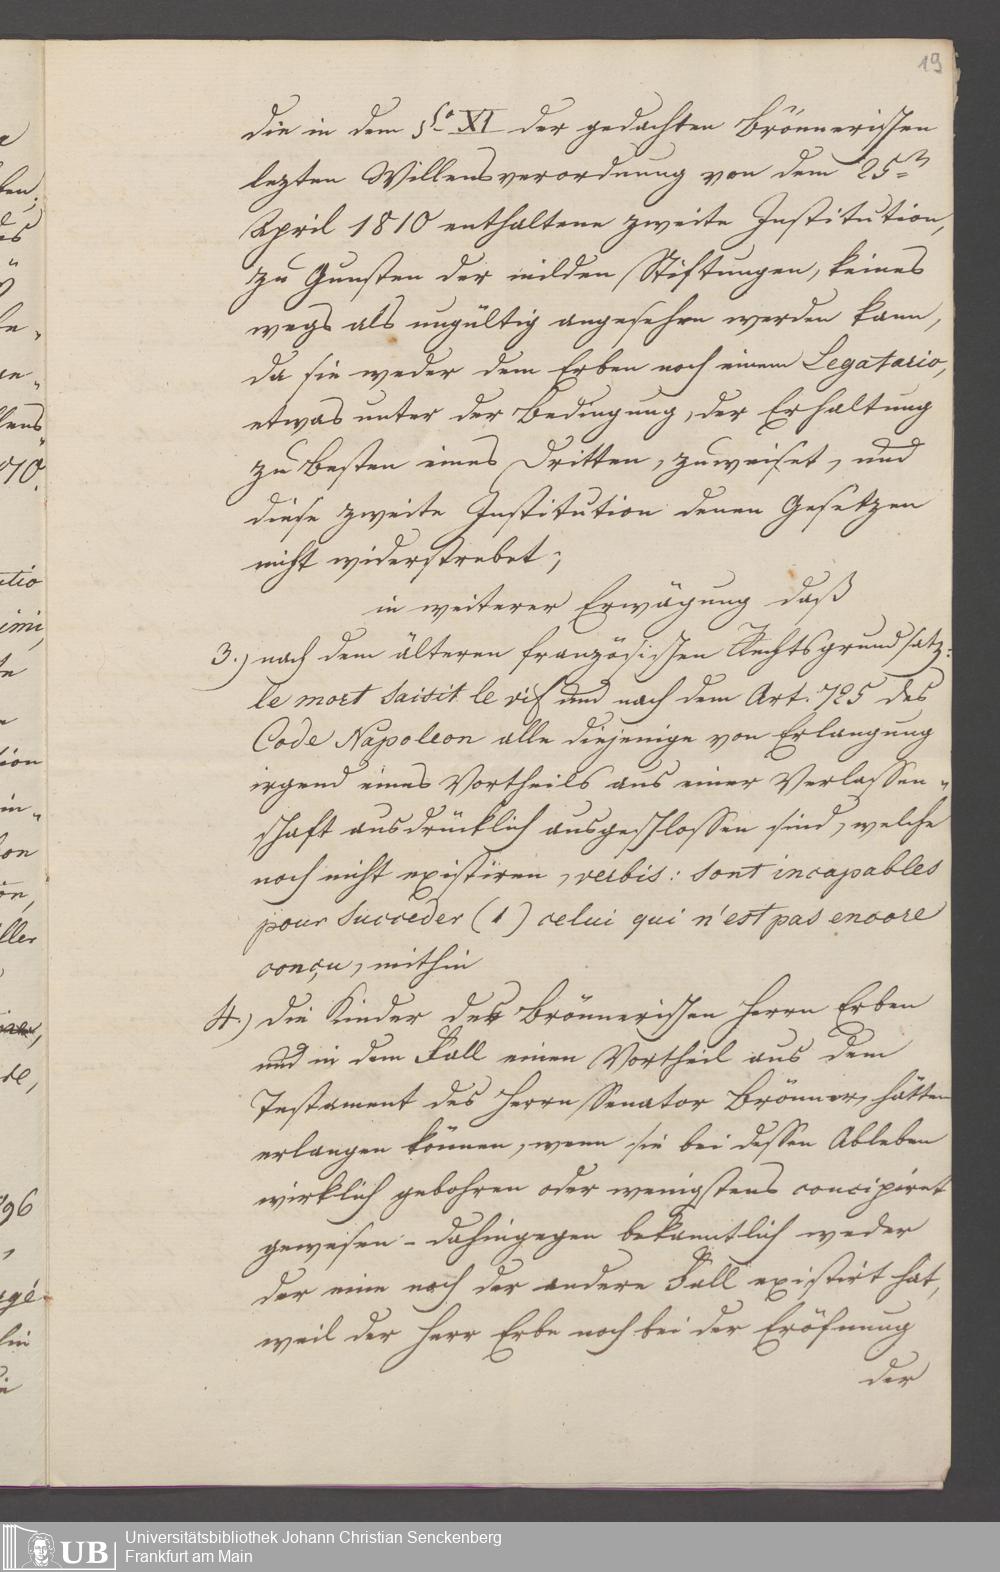 19
die in dem §o XI der gedachten Brönnerischen
lezten Willensverordnung von dem 25n
April 1810 enthaltene zweite Institution,
zu Gunsten der milden Stiftungen, keines
wegs als ungültig angesehen werden kann,
da sie weder dem Erben noch einem Legatario,
etwas unter der Bedingung, der Erhaltung
zu besten eines Dritten, zuweiset, und
diese zweite Institution denen Gesetzen
nicht widerstrebet;
in weiterer Erwägung daß
3.) nach dem älteren französischen Rechtsgrundsatz:
le mort saisit le vif und nach dem Art. 725 des
Code Napoleon alle diejenige von Erlangung
irgend eines Vortheils aus einer Verlassen„
schaft ausdrücklich ausgeschlossen sind, welche
noch nicht existiren, verbis: sont incapables
pour succeder (1) celui qui n'est pas encore
conçu, mithin
4.) die Kinder des Brönnerischen Herrn Erben
nur in dem Fall einen Vortheil aus dem
Testament des Herrn Senator Brönner, hätten
erlangen können, wenn sie bei dessen Ableben
wirklich gebohren oder wenigstens concipiret
gewesen - dahingegen bekanntlich weder
der eine noch der andere Fall existirt hat,
weil der Herr Erbe noch bei der Eröfnung
der
UB
Universitätsbibliothek Johann Christian Senckenberg
Frankfurt am Main